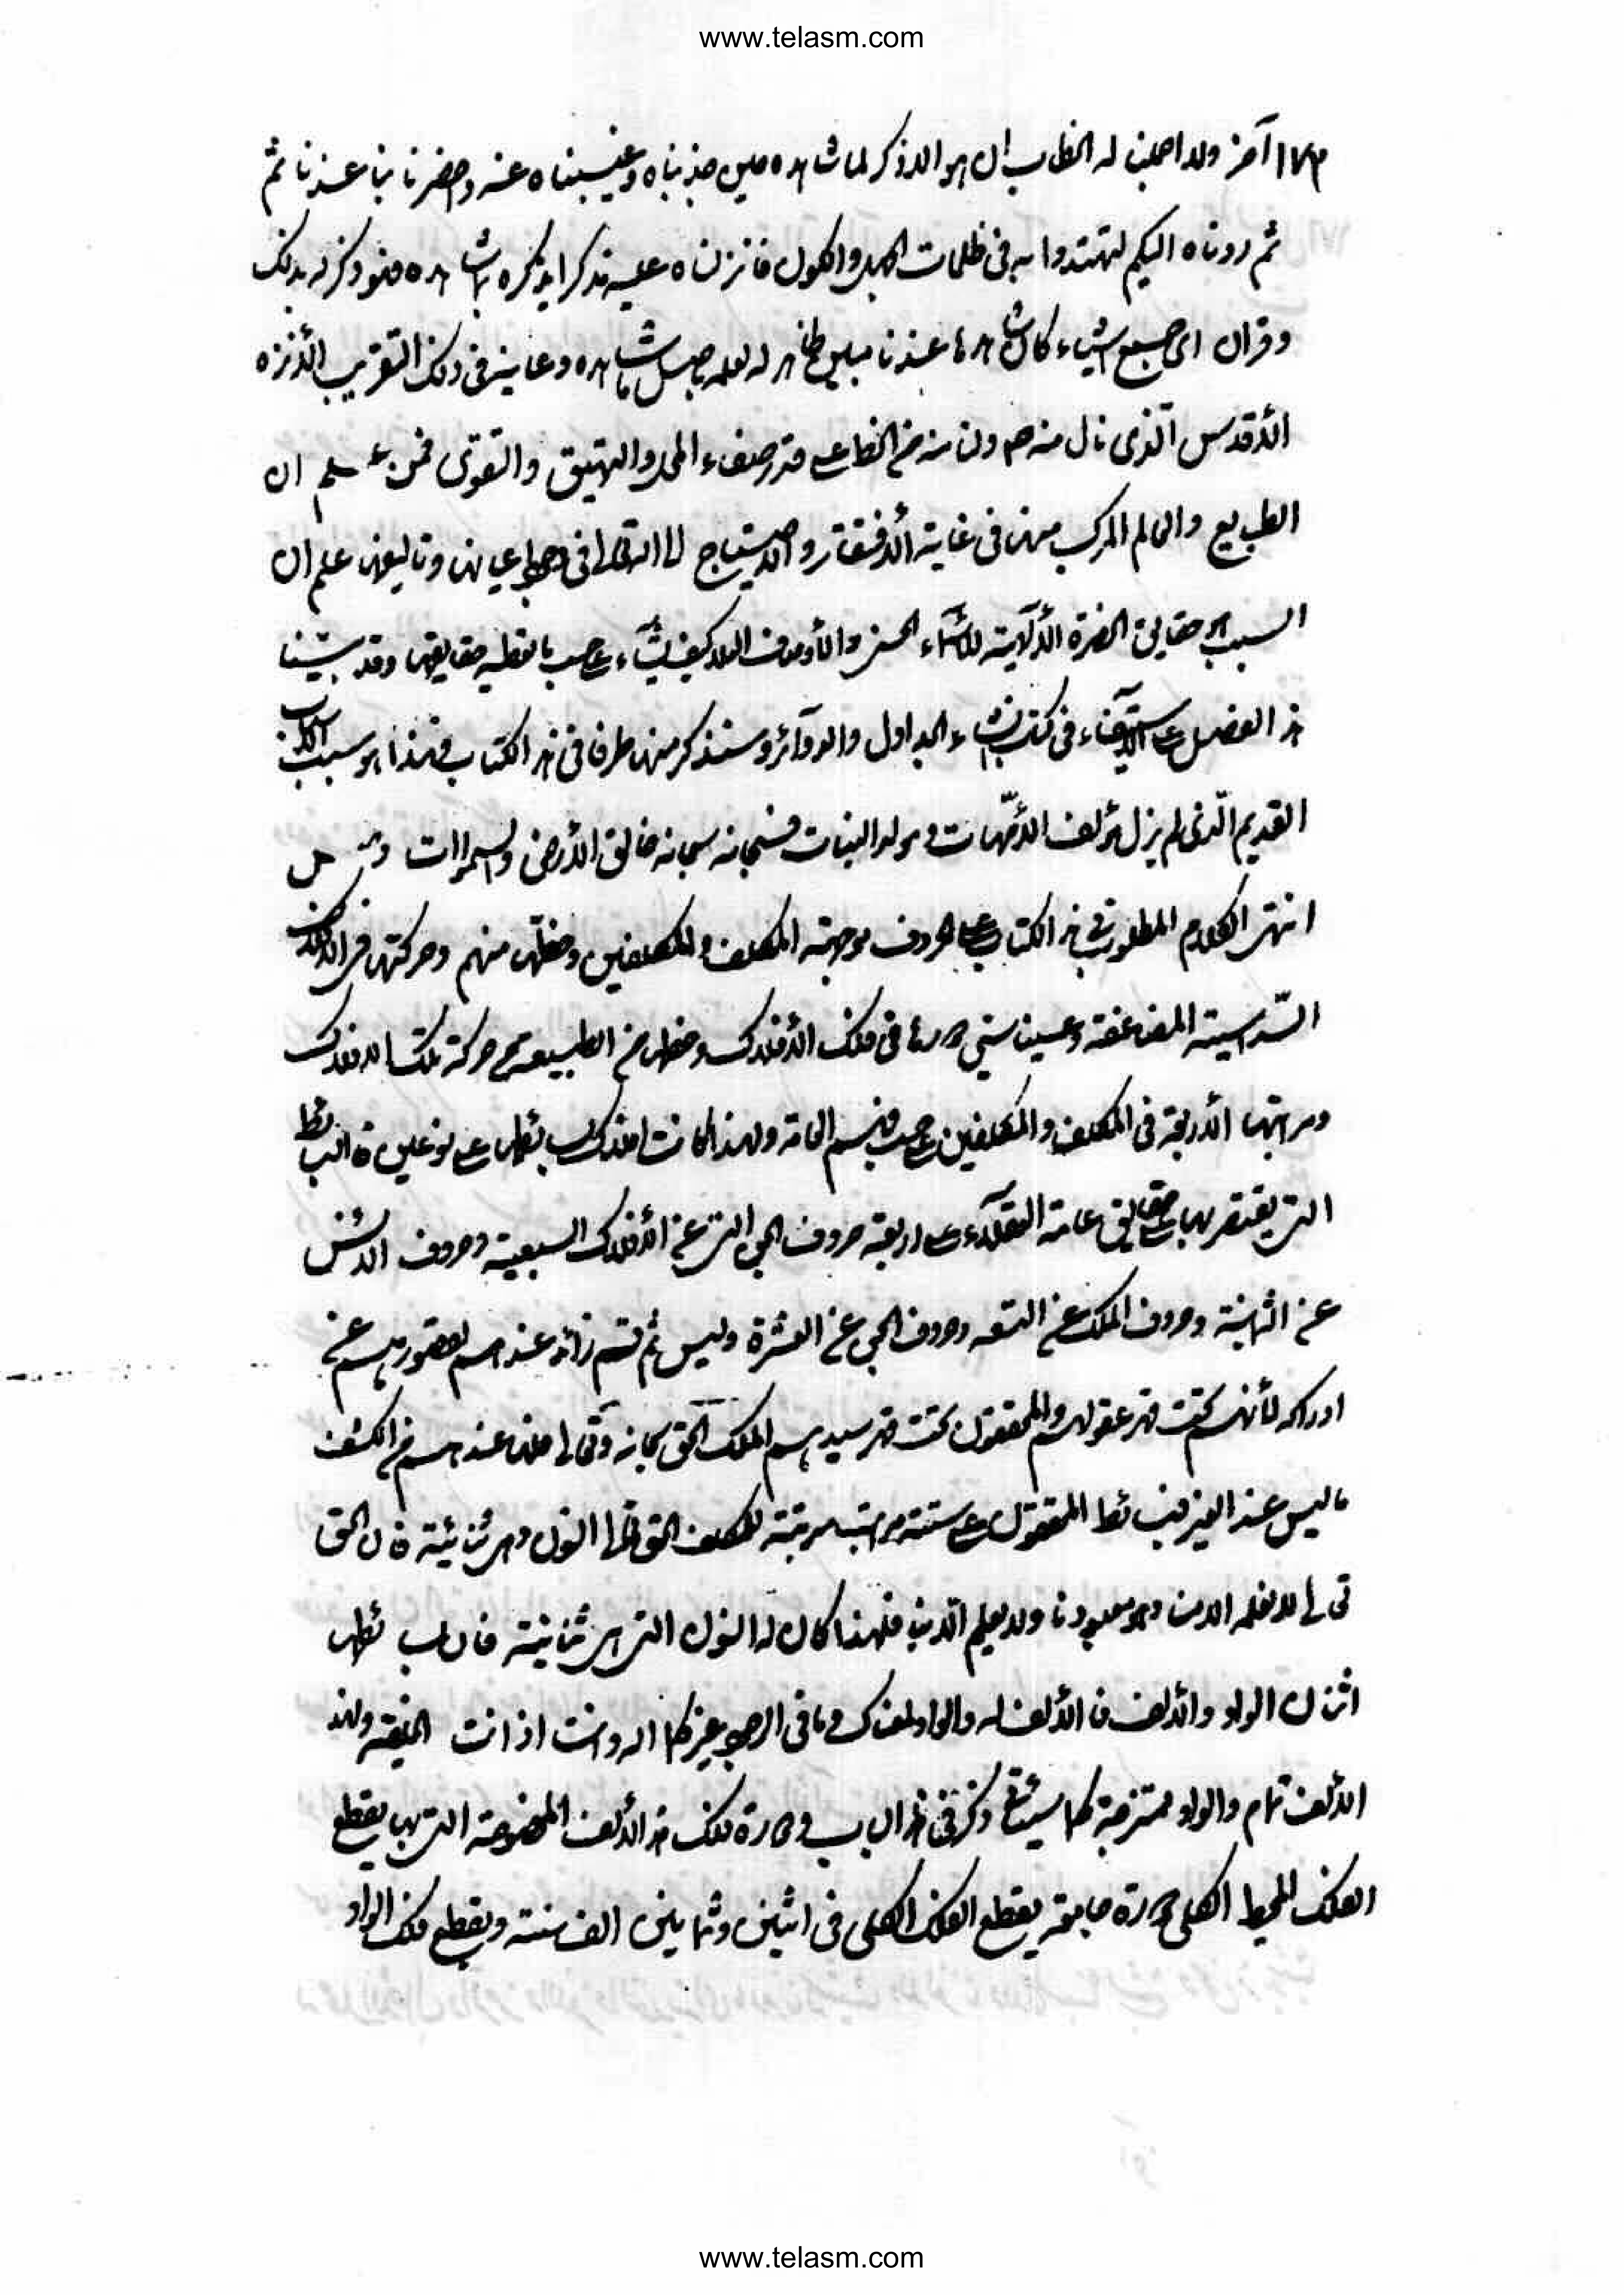 www.telasm.com
آخر ولا اجملنا له الخطاب ان هو الا ذكر لما شاهده حين جذبناه وغيبناه عنه واحضرناه بنا عندنا ثم
ثم رددناه اليكم لتهتدوا به في ظلمات الجهل والكون فانزلناه عليه مذكرا يذكره بما شاهده فهو ذكر له بذلك
وقران اى جمع اشياء كان شاهدها عندنا مبين ظاهر له لعلمه باصل ما شاهده وعاينه في ذلك التقريب الأنزه
الأقدس الذى نال منه صم ولنا منه من الحظ على قدر صفاء المحل والتهيؤ والتقوى فمن علم ان
الطبايع والعالم المركب منها في غاية الأفتقار والاحتياج الى الله تعالى في وجود اعيانها وتاليفها علم ان
السبب هو حقايق الحضرة الألهية الأسماء الحسنى والأوصاف العلى كيف تشاء على حسب ما تعطيه حقايقها وقد بيّنا
هذا الفصل على الاستيفاء في كتاب انشاء الجداول والدوائر وسنذكر منها طرفا في هذا الكتاب فهذا هو سبب الأسباب
القديم الّذى لم يزل مؤلف الأمّهات ومولد البنات فسبحانه سبحانه خالق الأرض والسموات
انتهى الكلام المطلوب في هذا الكتاب على الحروف من جهة المكلف والمكلفين وحظها منهم وحركتها في الأفلاك
السّداسية المضاعفة وعينا سني دورتها في تلك الأفلاك وحظها من الطبيعة من حركة تلك الافلاك
ومراتبها الأربعة في المكلف والمكلفين على حسب فهم العامة ولهذا كانت افلاك بسائطها على نوعين فالبسائط
التى يقتصر بها على حقايق عامة العقلاء على اربعة حروف الحق التى عن الأفلاك السبعية وحروف الانس
عن الثمانية وحروف الملك عن التسعة وحروف الجن عن العشرة وليس ثم قسم زائد عندهم لقصورهم عن
ادراكه لأنهم تحت قهر عقولهم والمحققون تحت قهر سيدهم الملك الحق سبحانه وتعالى فلهذا عندهم من الكشف
ما ليس عند الغير فبسائط المحققون على ستة مراتب مرتبة للمكلف الحق تعالى النون وهى ثنائية فان الحق
تعالى لا نعلمه الا منا وهو معبودنا ولا يعلم الّا بنا فلهذا كان له النون التى هى ثنائية فان بسائطها
اثنان الواو والألف فالألف له والواو لمعناك وما في الوجود غير الله وانت اذ انت الخليفة ولهذا
الألف تام والواو ممتزجة كما سيأتى ذكره في هذا الباب ودورة تلك هذا الألف المخصوصة التى بها يقطع
الفلك المحيط الكلى دورة جامعة يقطع الفلك الكلى في اثنين وثمانين الف سنة ويقطع فلك الواو
www.telasm.com